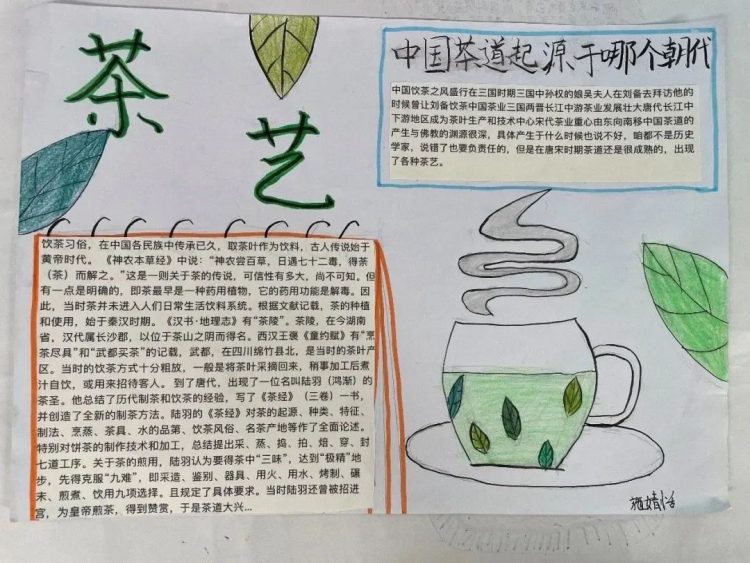 茶
艺
中国茶道起源于哪个朝代
中国饮茶之风盛行在三国时期三国中孙权的娘吴夫人在刘备去拜访他的
时候曾让刘备饮茶中国茶业三国两晋长江中游茶业发展壮大唐代长江中
下游地区成为茶叶生产和技术中心宋代茶业重心由东向南移中国茶道的
产生与佛教的渊源很深，具体产生于什么时候也说不好，咱都不是历史
学家，说错了也要负责任的，但是在唐宋时期茶道还是很成熟的，出现
了各种茶艺。
饮茶习俗，在中国各民族中传承已久，取茶叶作为饮料，古人传说始于
黄帝时代。《神农本草经》中说：“神农尝百草，日遇七十二毒，得荼
（茶）而解之。”这是一则关于茶的传说，可信性有多大，尚不可知。但
有一点是明确的，即茶最早是一种药用植物，它的药用功能是解毒。因
此，当时茶并未进入人们日常生活饮料系统。根据文献记载，茶的种植
和使用，始于秦汉时期。《汉书·地理志》有“荼陵”。荼陵，在今湖南
省，汉代属长沙郡，以位于茶山之阴而得名。西汉王褒《童约赋》有“烹
茶尽具”和“武都买茶”的记载，武都，在四川绵竹县北，是当时的茶叶产
区。当时的饮茶方式十分粗放，一般是将茶叶采摘回来，稍事加工后煮
汁自饮，或用来招待客人。到了唐代，出现了一位名叫陆羽（鸿渐）的
茶圣。他总结了历代制茶和饮茶的经验，写了《茶经》（三卷）一书，
并创造了全新的制茶方法。陆羽的《茶经》对茶的起源、种类、特征、
制法、烹蒸、茶具、水的品第、饮茶风俗、名茶产地等作了全面论述。
特别对饼茶的制作技术和加工，总结提出采、蒸、捣、拍、焙、穿、封
七道工序。关于茶的煎用，陆羽认为要得茶中“三昧”，达到“极精”地
步，先得克服“九难”，即采造、鉴别、器具、用火、用水、烤制、碾
末、煎煮、饮用九项选择。且规定了具体要求。当时陆羽还曾被招进
宫，为皇帝煎茶，得到赞赏，于是茶道大兴...